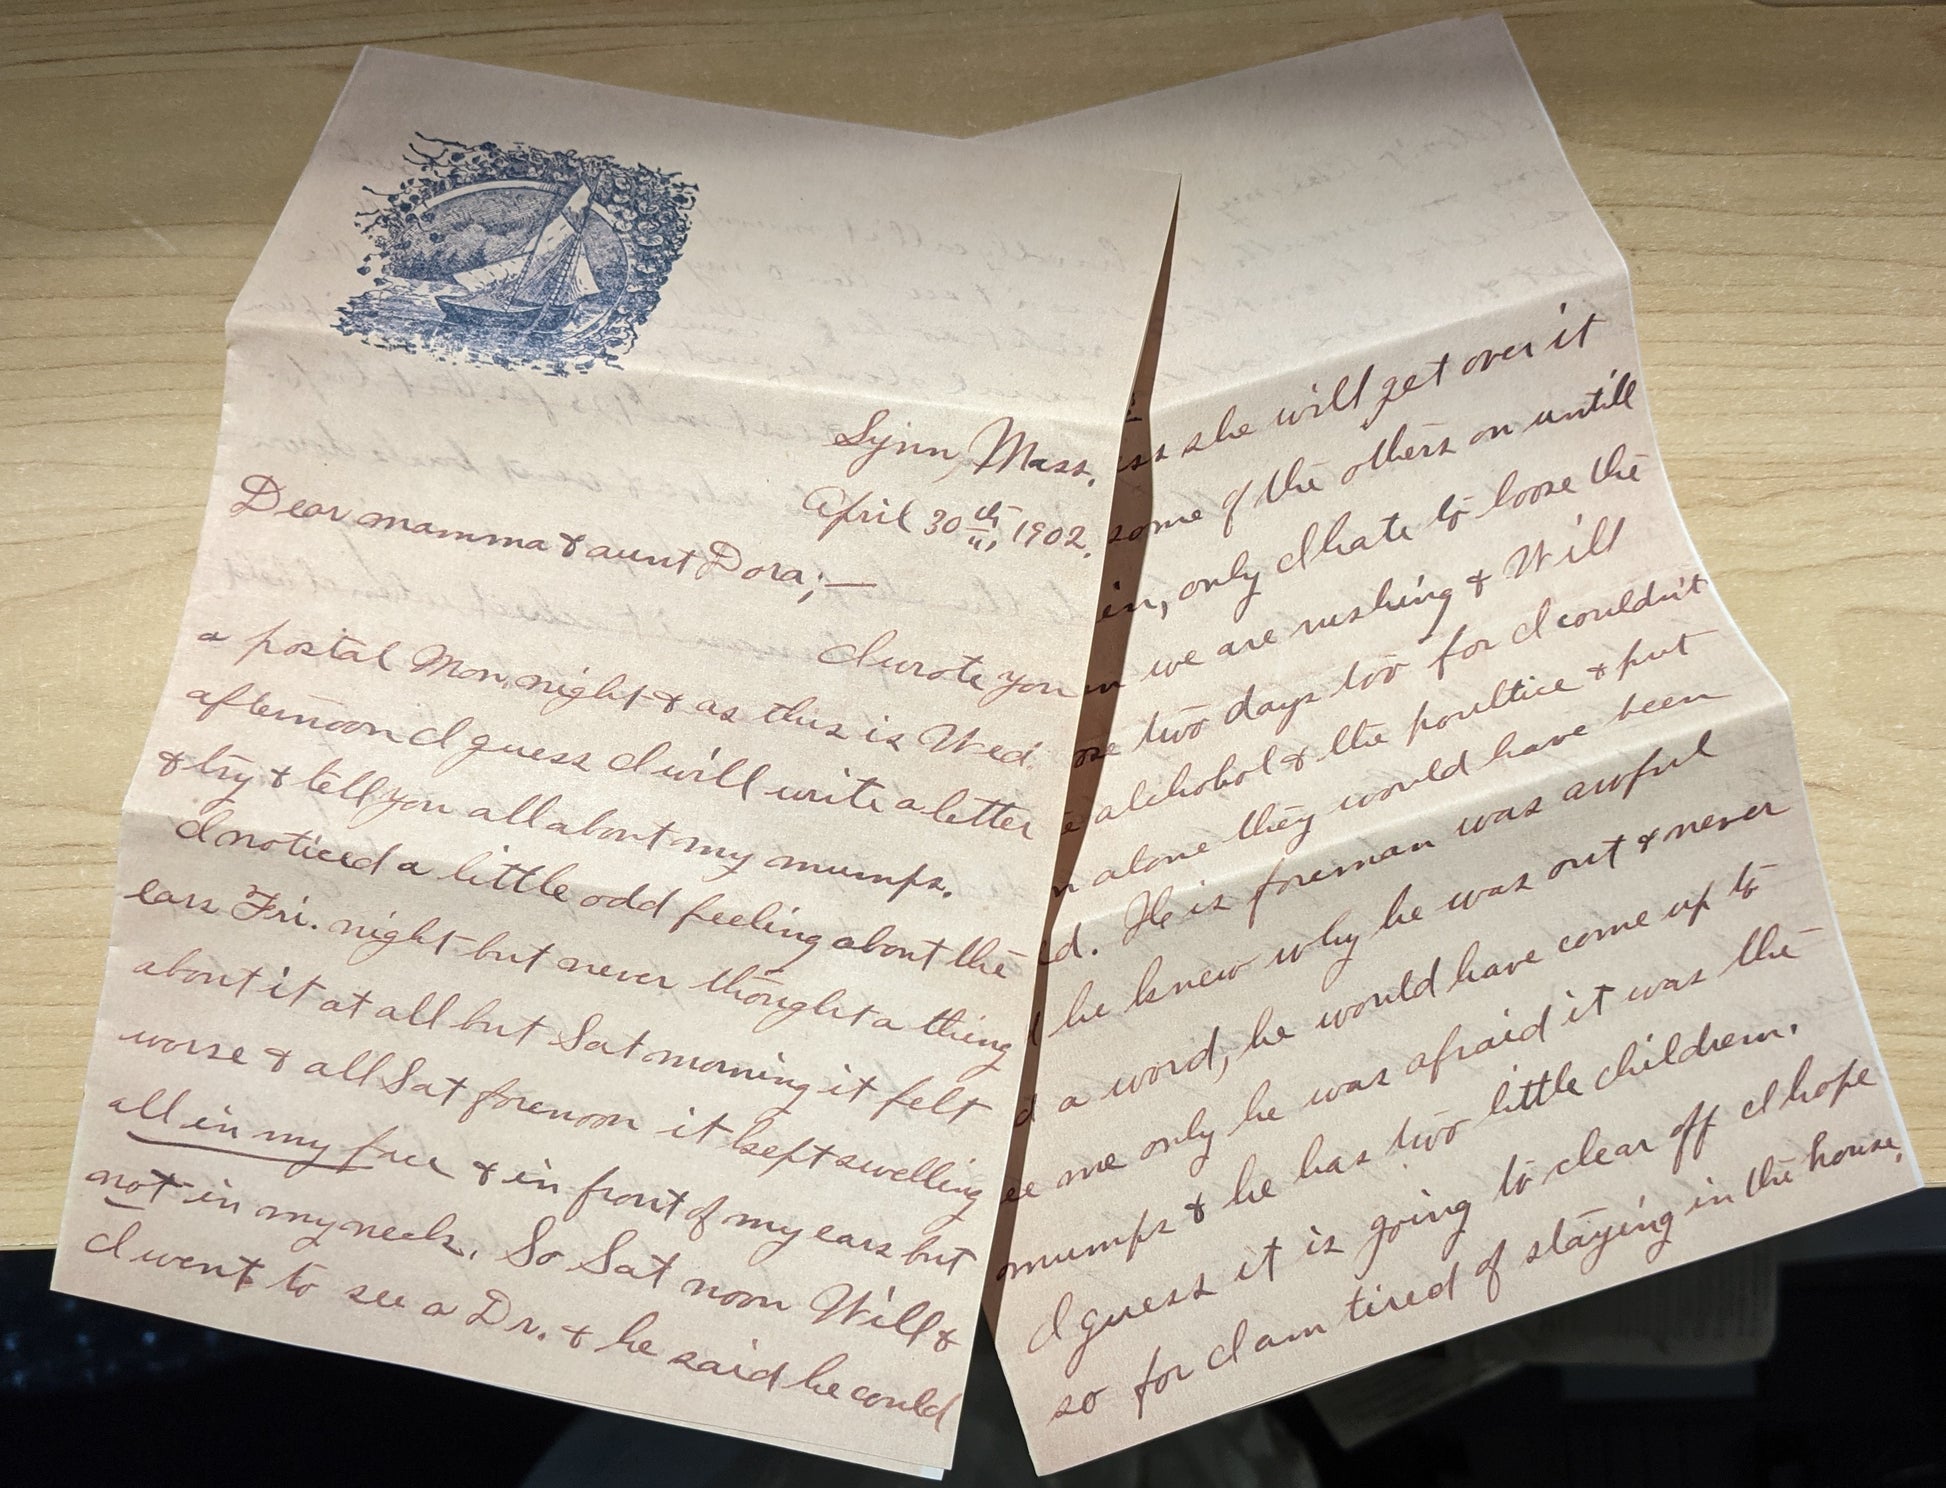 Lynn, Mass.
April 30th, 1902.
Dear mamma & aunt Dora;—
I wrote you
a postal Mon. night & as this is Wed.
afternoon I guess I will write a letter
& try & tell you all about my mumps.
I noticed a little odd feeling about the
ears Fri. night but never thought a thing
about it at all but Sat morning it felt
worse & all Sat forenoon it kept swelling
all in my face & in front of my ears but
not in my neck. So Sat noon Will &
I went to see a Dr. & he said he could
ss she will get over it
some of the others on untill
in, only I hate to loose the
we are rushing & Will
two days too for I couldn't
alchohol & the poultice & put
alone they would have been
d. He is foreman was awful
he knew why he was out & never
a word, he would have come up to
me only he was afraid it was the
mumps & he has two little children.
I guess it is going to clear off I hope
so for I am tired of staying in the house,